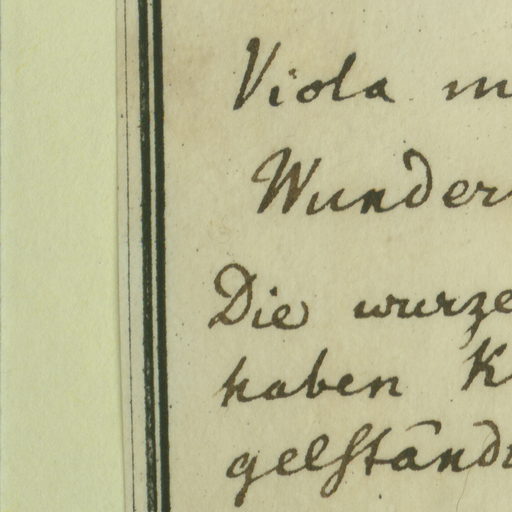 Viola m
Wunder
Die wurze
haben K
gelständ